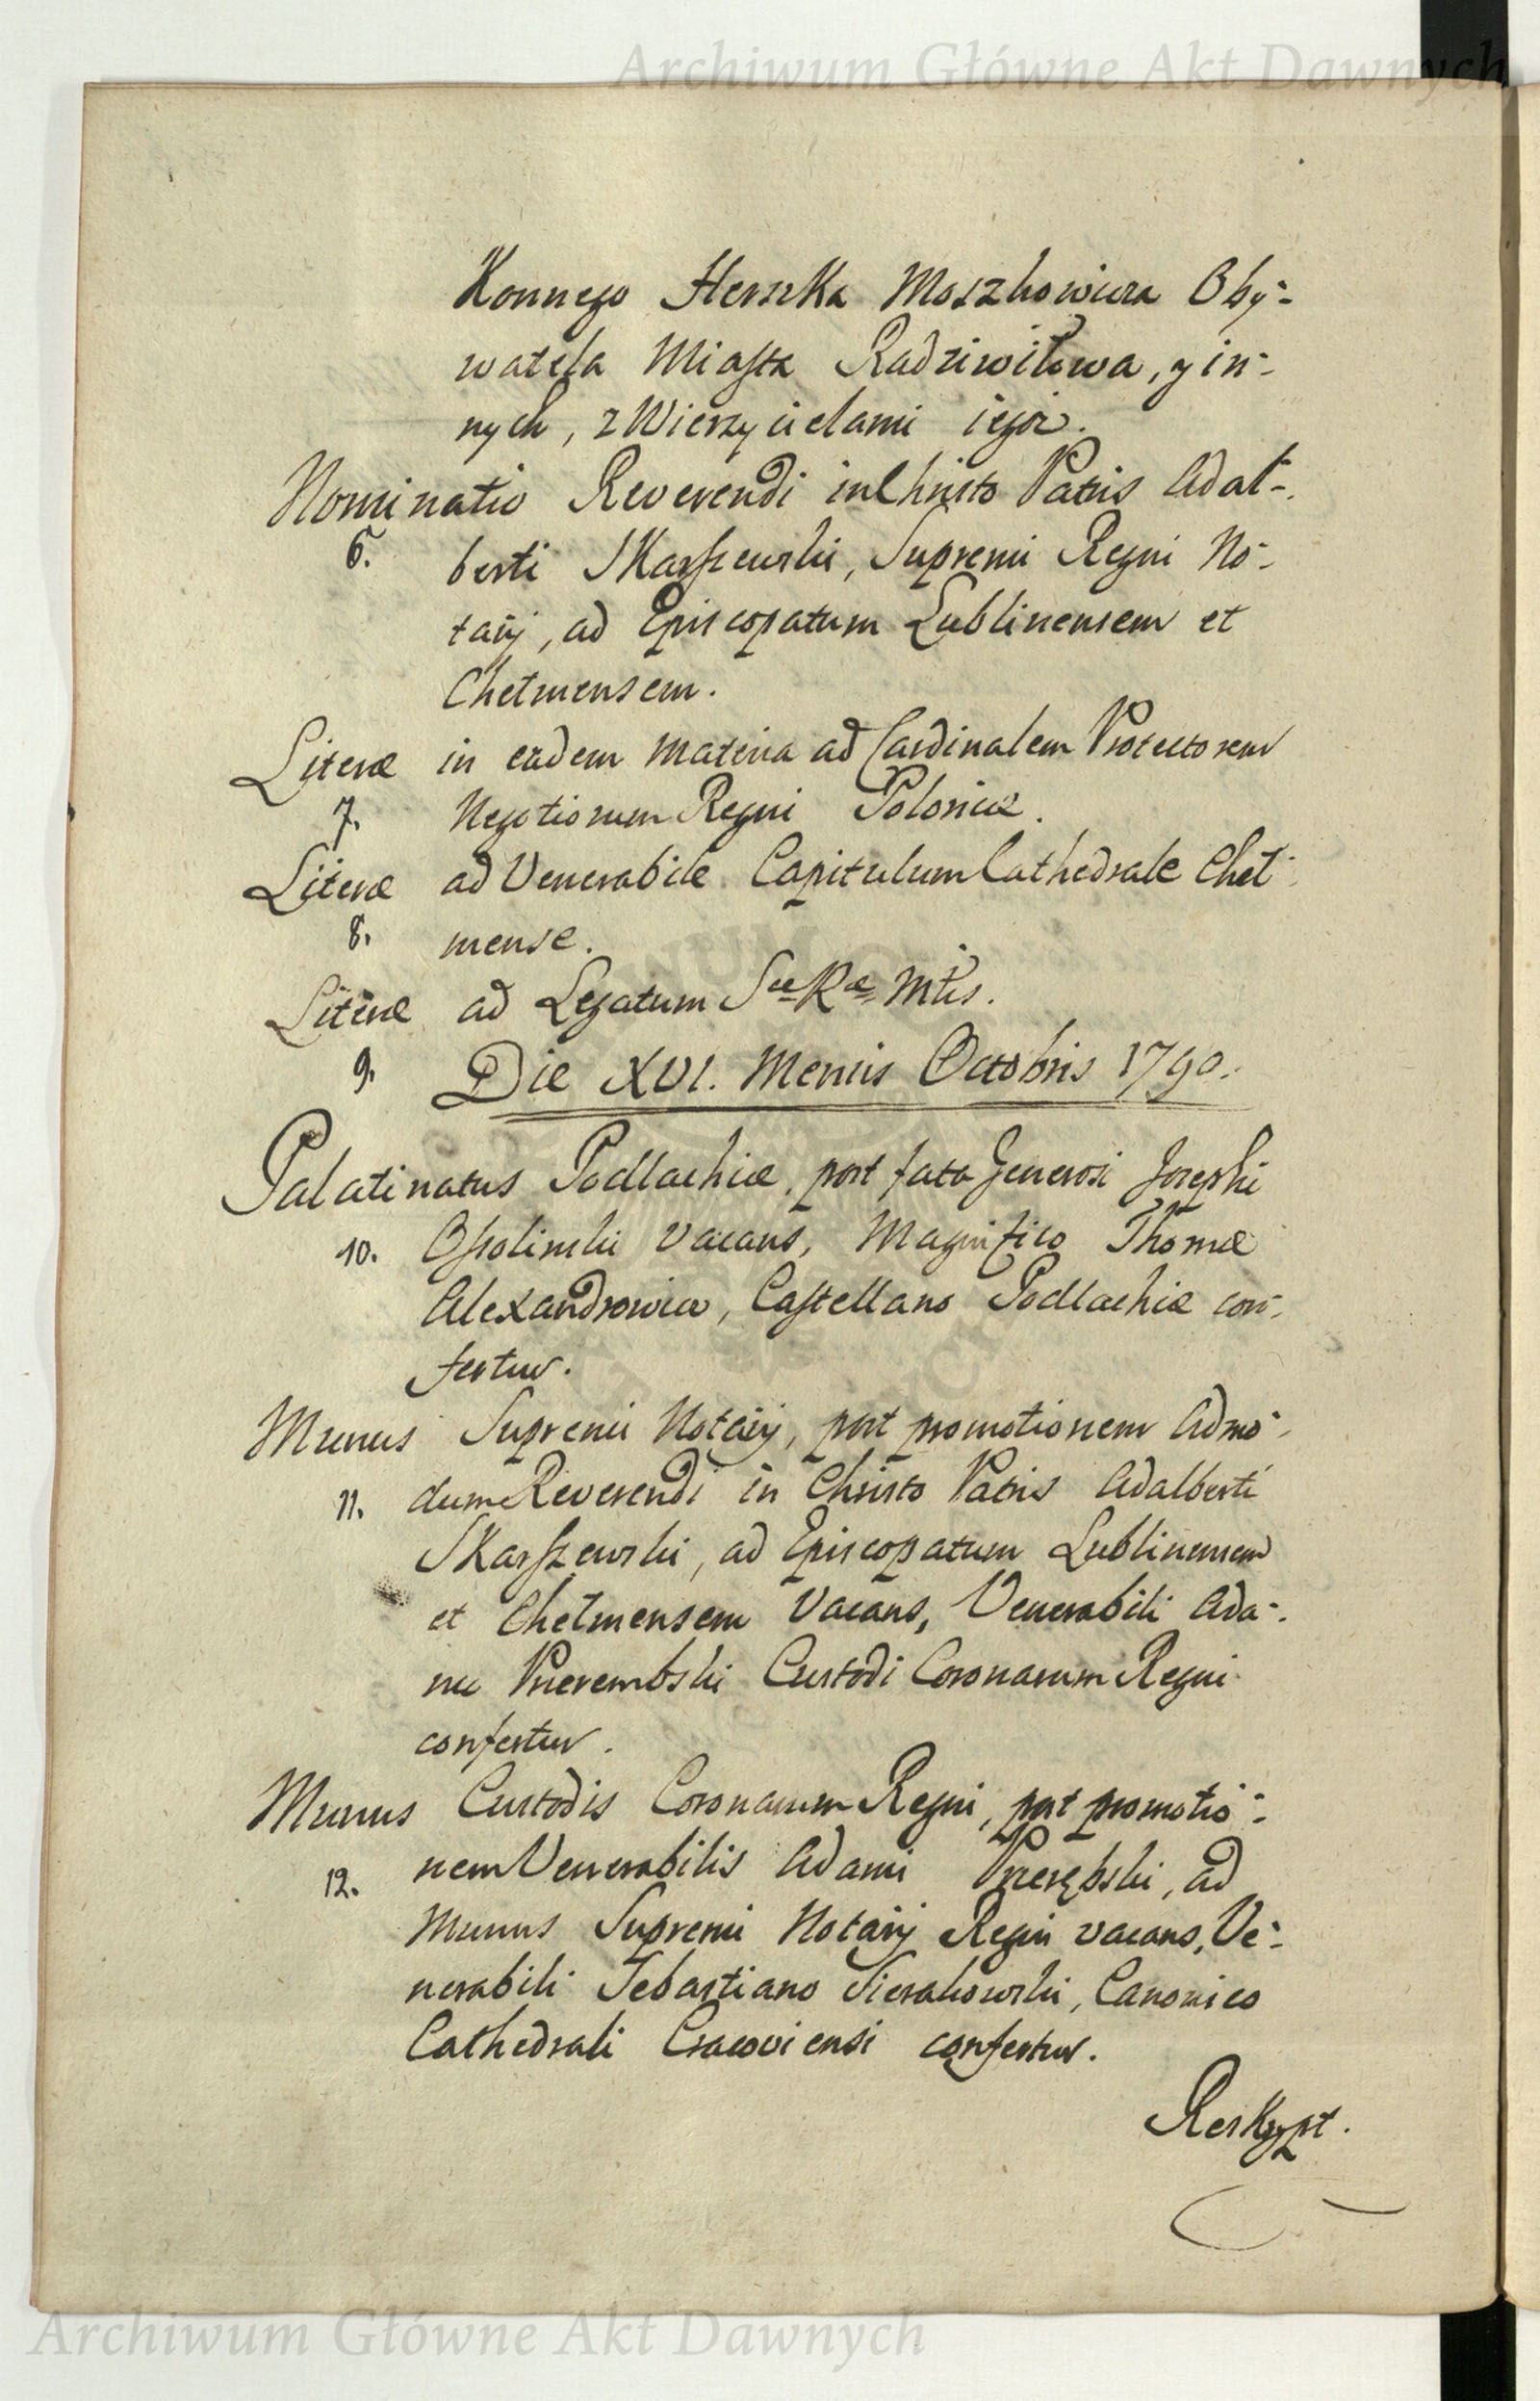 Archiwum Główne Akt Dawnych
Konnego Herszka Moszkowicza Oby-
watela Miasta Radziwiłowa, y in-
nych, z Wierzycielami iego.
Nominatio Reverendi in Christo Patris Adal-
6. berti Skarszewski, Supremi Regni No-
tarij, ad Episcopatum Lublinensem et
Chełmensem.
Literæ in eadem materia ad Cardinalem Protectorem
7. Negotiorum Regni Poloniæ.
Literæ ad Venerabile Capitulum Cathedrale Cheł-
8. mense.
Literæ ad Legatum Sæ Ræ Mtis.
9. Die XVI. Mensis Octobris 1790.
Palatinatus Podlachiæ, post fata Generosi Josephi
10. Ossolinski vacans, Magnifico Thomæ
Alexandrowicz, Castellano Podlachiæ con-
fertur.
Munus Supremi Notarij, post promotionem Admo-
11. dum Reverendi in Christo Patris Adalberti
Skarszewski, ad Episcopatum Lublinensem
et Chełmensem vacans, Venerabili Ada-
mo Przerembski Custodi Coronarum Regni
confertur.
Munus Custodis Coronarum Regni, post promotio-
12. nem Venerabilis Adami Przerębski, ad
Munus Supremi Notarij Regni vacans, Ve-
nerabili Sebastiano Sierakowski, Canonico
Cathedrali Cracoviensi confertur.
Reskrypt.
Archiwum Główne Akt Dawnych